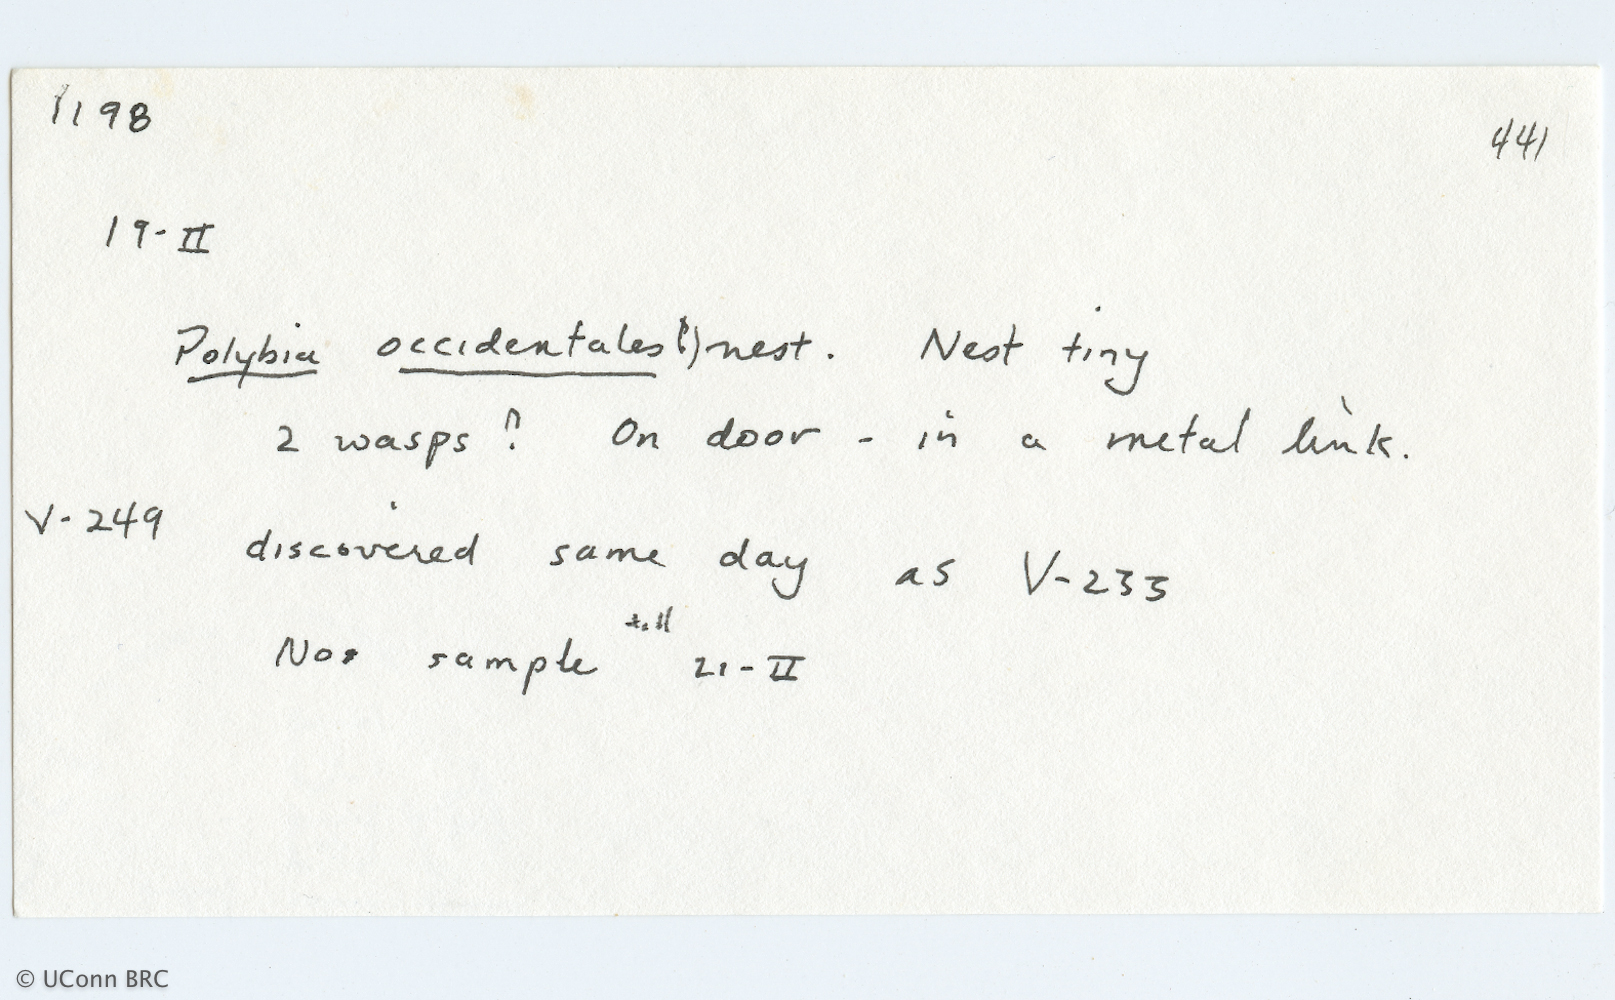 1198
441
19-II
Polybia occidentales (?) nest. Nest tiny
2 wasps? On door - in a metal link.
V-249
discovered same day as V-233
No sample till 21-II
© UConn BRC